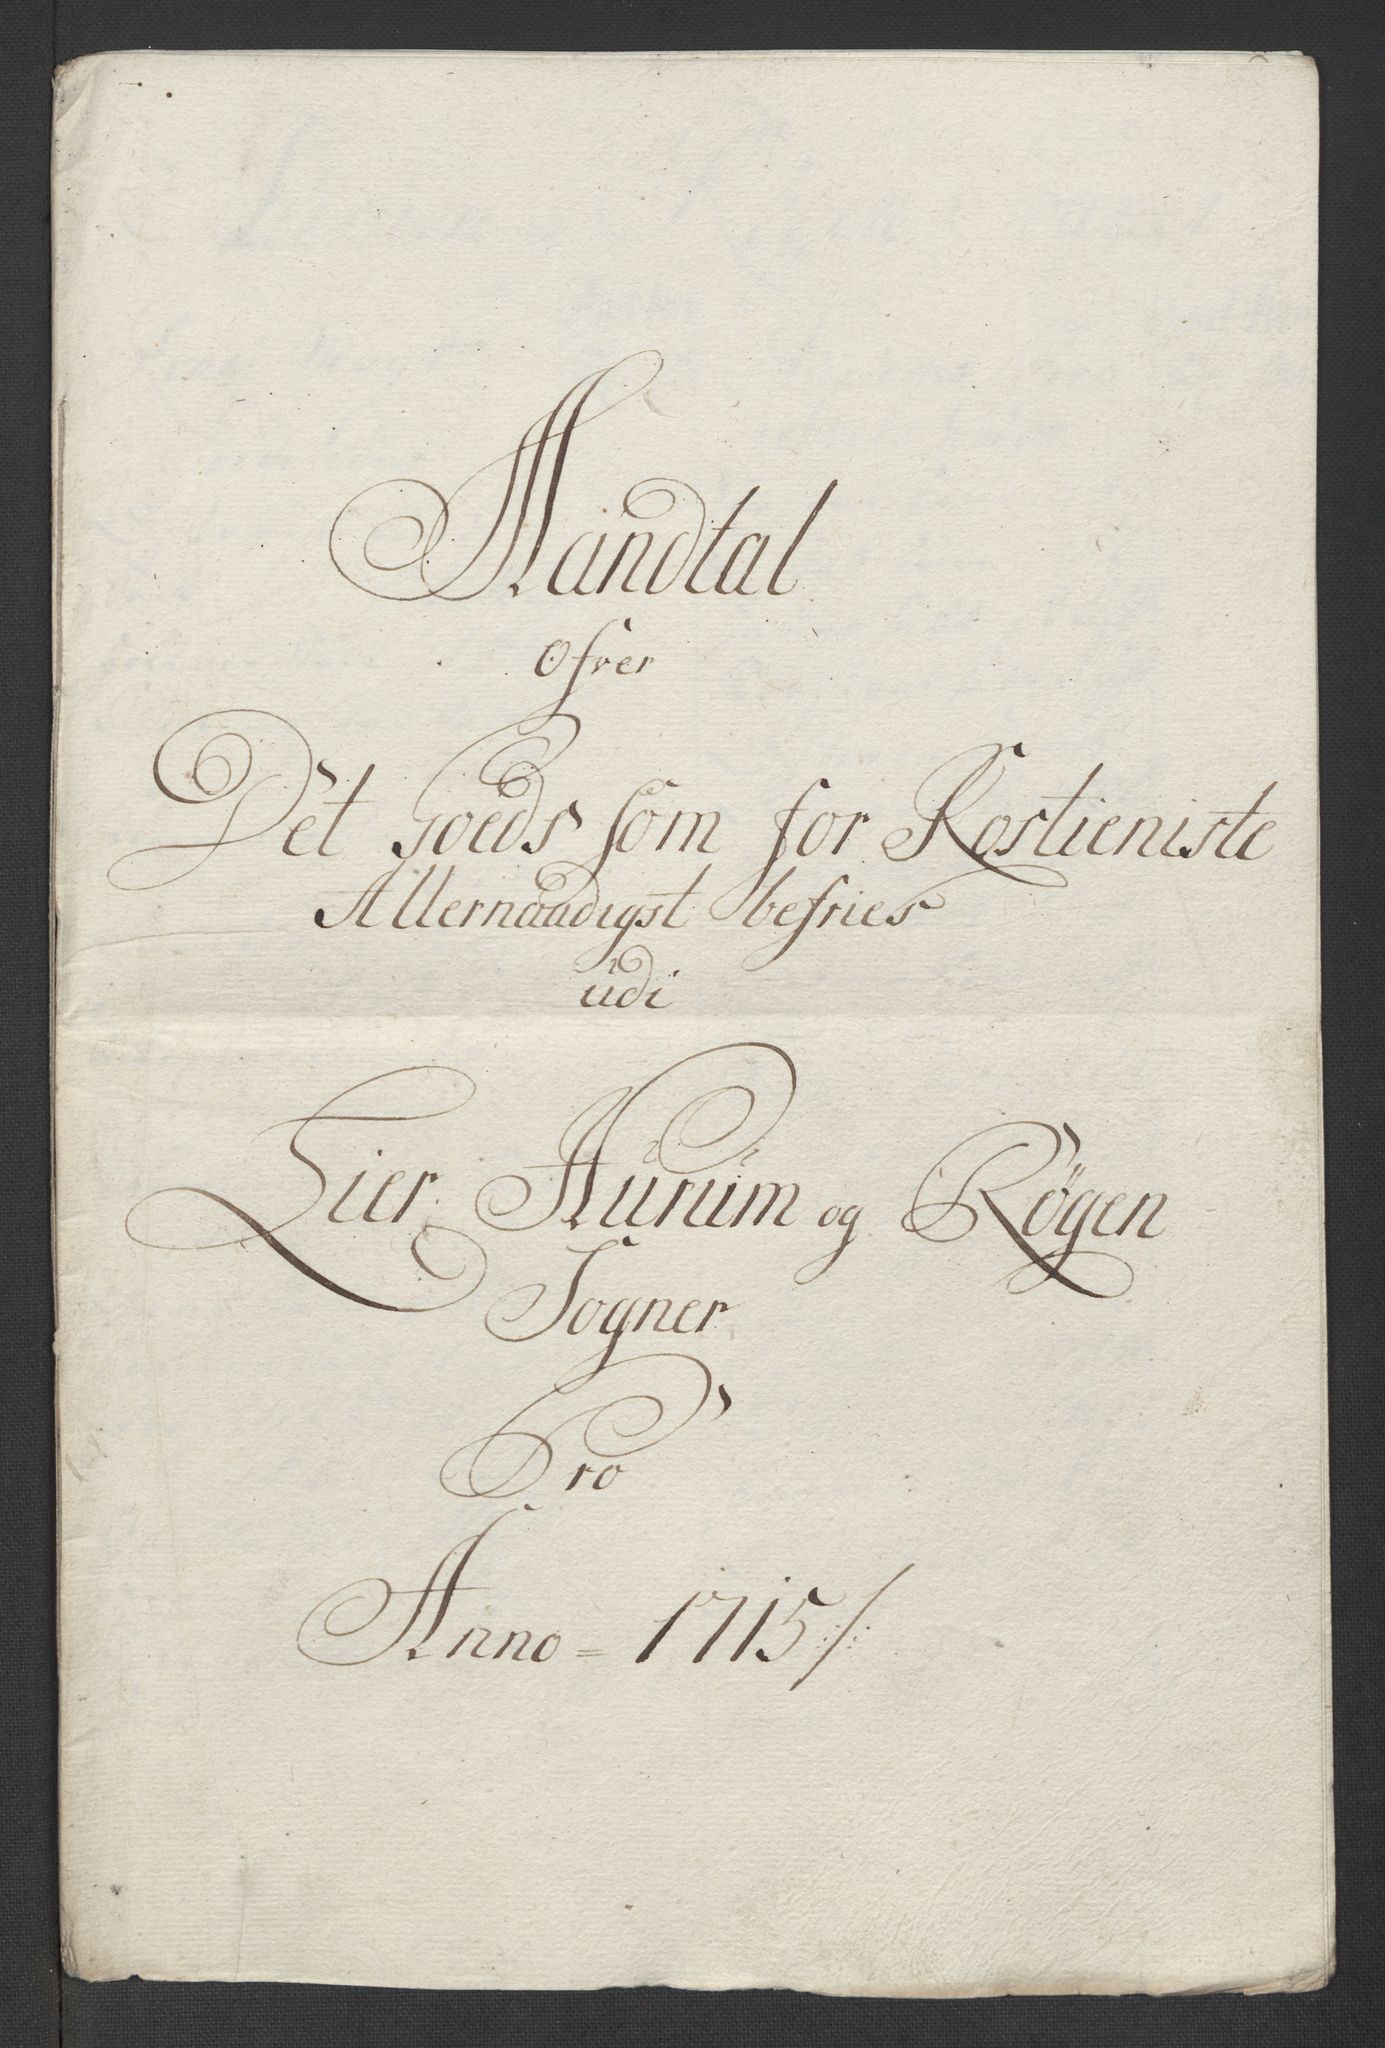 Mandtal
Ofver
Det Goeds som for Rostieniste
Allernaadigst befries
udi
Lier Hurum og Røgen
Sogner
Pro
Anno = 1715 /